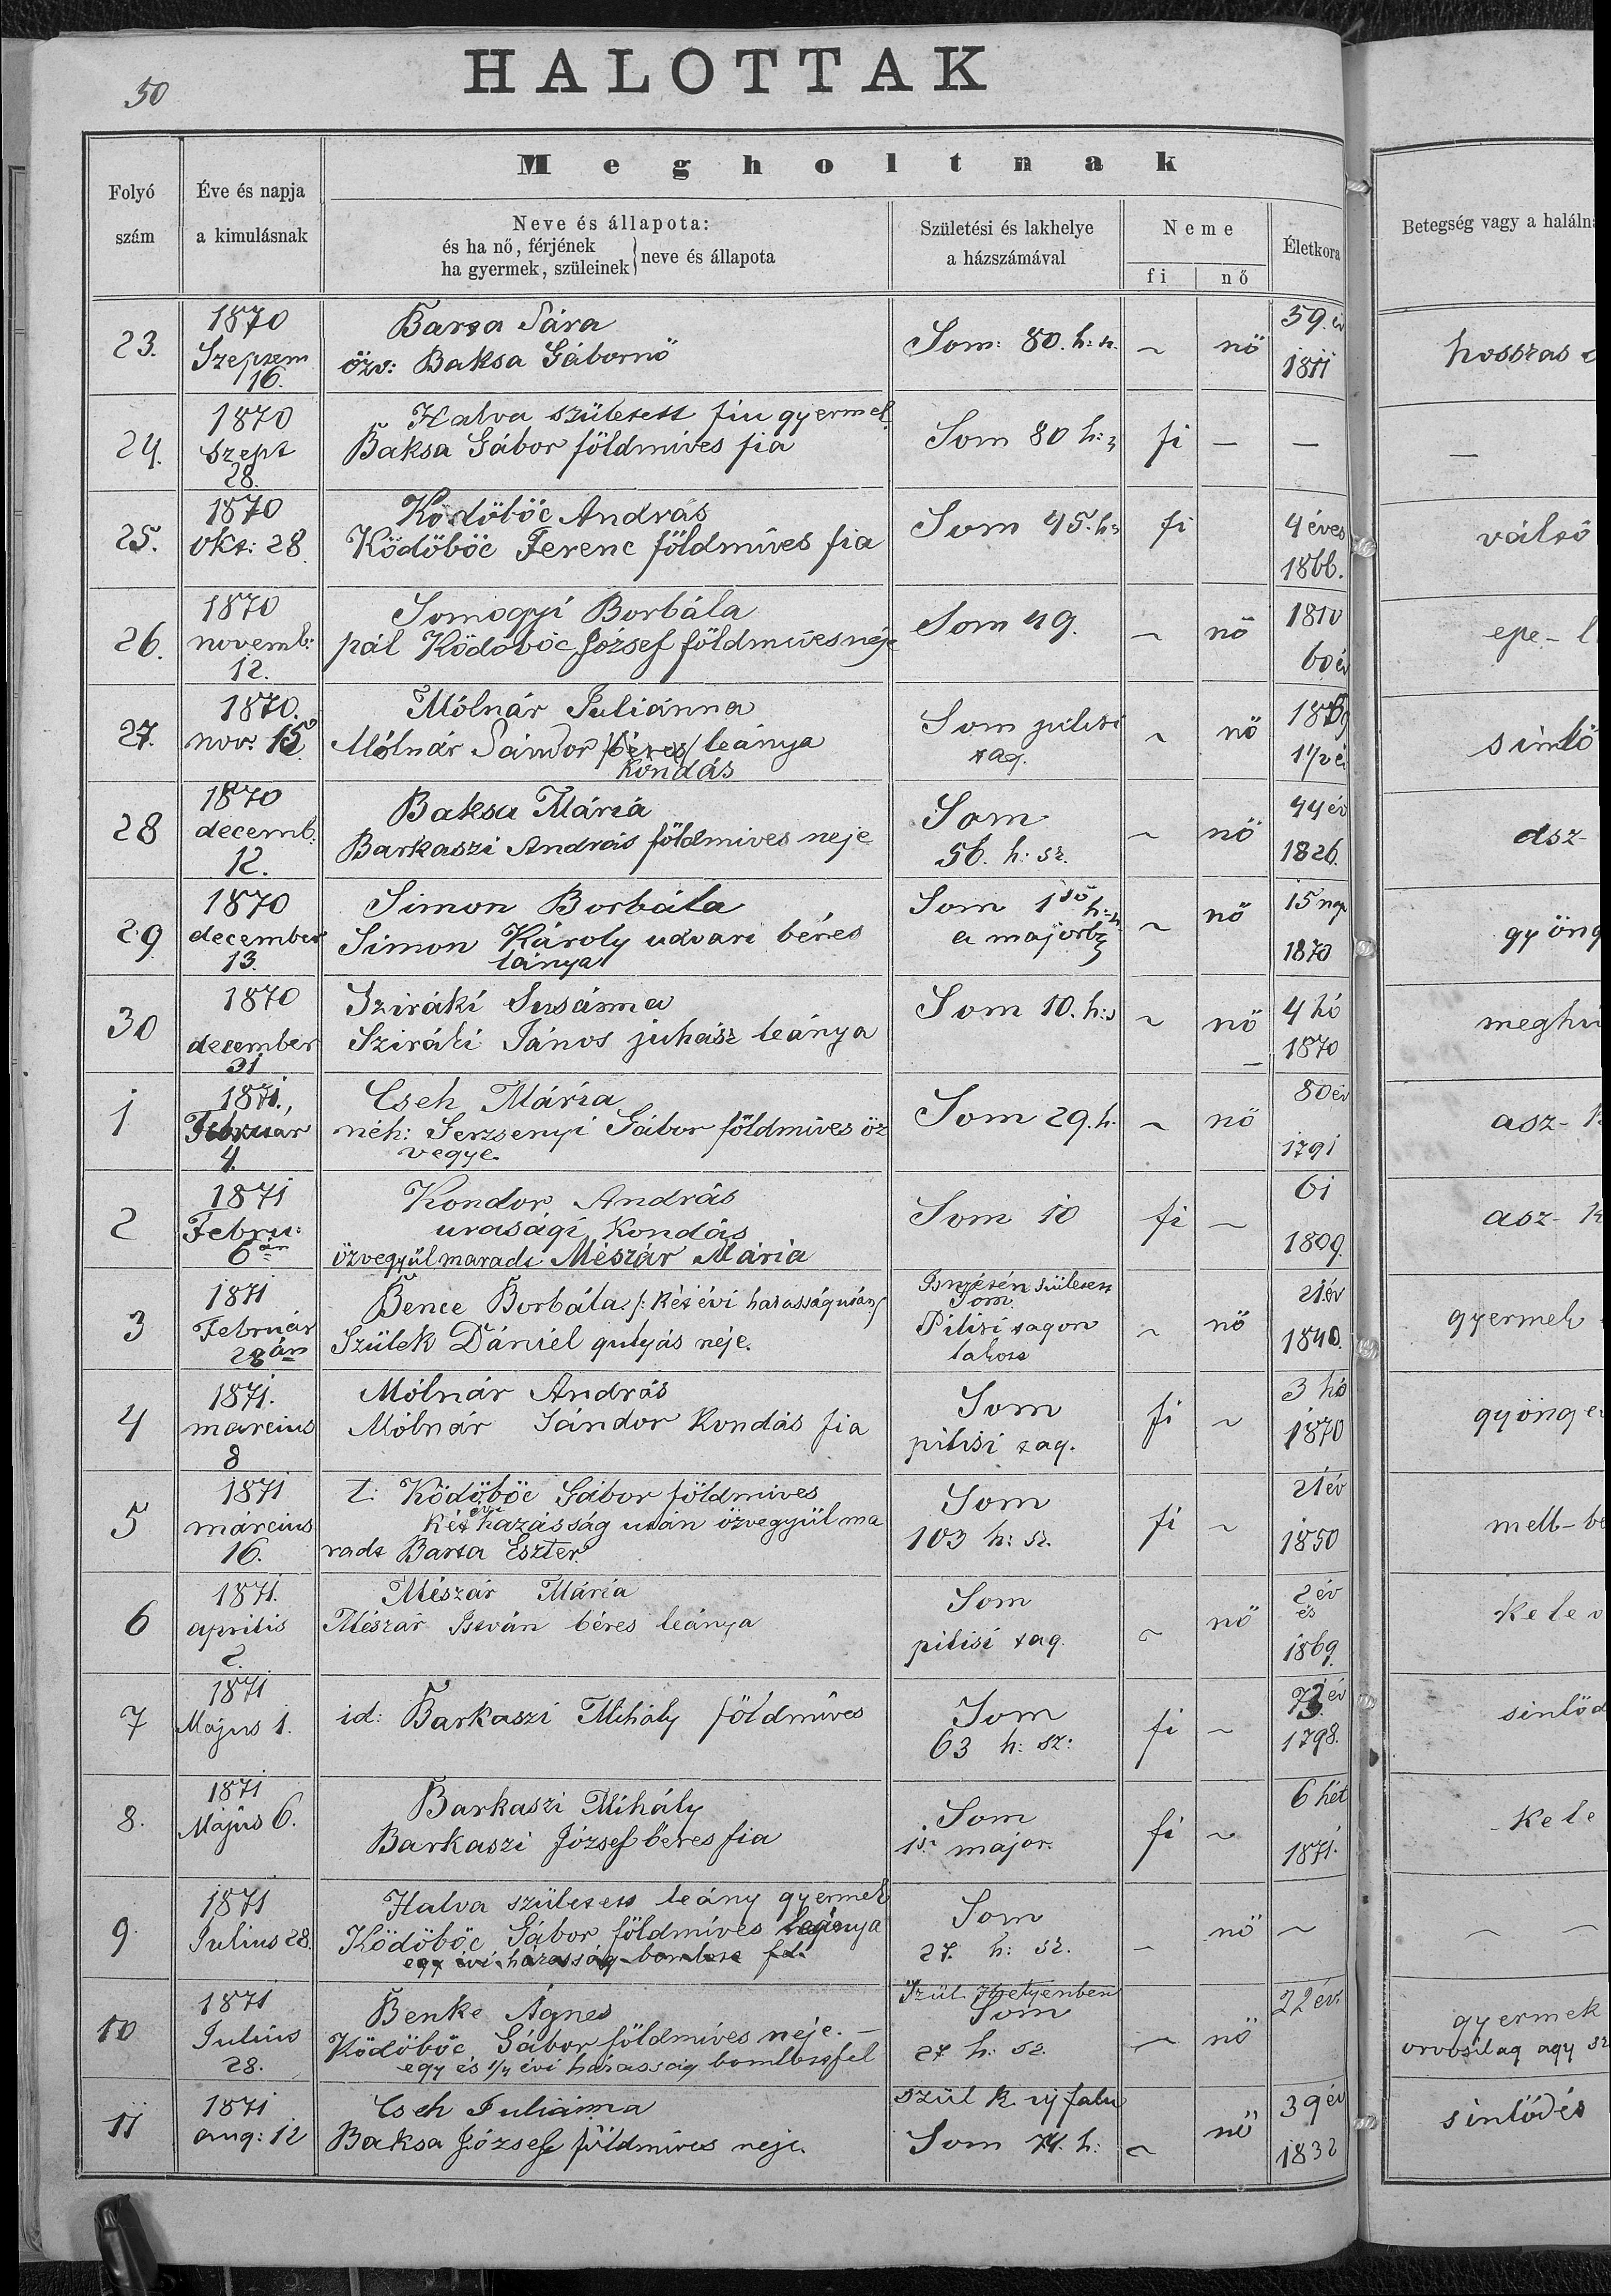 50
HALOTTAK
Megholtnak
Folyó szám
Éve és napja a kimulásnak
Neve és állapota:
és ha nő, férjének
ha gyermek, szüleinek
neve és állapota
Születési és lakhelye
a házszámával
Neme
fi
nő
Életkora
Betegség vagy a halálna
23.
1870
Szeptem
16.
Barta Sára
özv: Baksa Gábornö
Som: 80. h: sz.
~ nö
59. év
1811
hosszas
24.
1870
Szept
28.
Halva született fiu gyermek
Baksa Gábor földmíves fia
Som 80 h:
fi — —
—
25.
1870
okt: 28.
Ködöböc András
Ködöböc Ferenc földmíves fia
Som 45. h:
fi
4 éves
1866.
váltó
26.
1870
novemb:
12.
Somogyi Borbála
pál Ködöböc József földmíves néje
Som 49.
~ nö
1810
60 év
epe-
27.
1870.
nov: 15.
Mólnár Juliánna
Mólnár Sándor /béres/ leánya
kondás
Som pilisi
tag.
~ nö
1869
1 1/2 é
sinlö
28
1870
decemb:
12.
Baksa Mária
Barkaszi András földmives neje
Som
56. h: sz.
~ nö
44 év
1826.
asz-
29
1870
december
13.
Simon Borbála
Simon Károly udvari béres
lánya
Som 1ső h:
a majorb
~ nö
15 nap
1870
gyöng
30
1870
december
31
Sziráki Susánna
Sziráki János juhász leánya
Som 10. h:
~ nö
4 hó
1870
meghü
1
1871.,
Február
4.
Cseh Mária
néh: Serzsenyi Gábor földmíves öz
vegye.
Som 29. h.
~ nö
80 év
1791
asz-
2
1871
Febru:
6án
Kondor András
urasági kondás
özvegyül maradt Mészár Mária
Som 10
fi ~
61
1809.
asz- k
3
1871
Február
28án
Bence Borbála /: két évi házasság után:/
Szülek Dániel gulyás néje.
született
Som.
Pilisi tagon
lakott
~ nö
21 év
1840.
gyermek
4
1871.
marcius
8
Mólnár András
Mólnár Sándor kondás fia
Som
pilisi tag.
fi ~
3 hó
1870
gyönge
5
1871
március
16.
t: Ködöböc Gábor földmives
két évi házasság után özvegyül ma
radt Barta Eszter
Som
103 h: sz.
fi ~
21 év
1850
mell-be
6
1871.
aprilis
2.
Mészár Mária
Mészár István béres leánya
Som
pilisi tag.
~ nö
2 év
és
1869.
kele
7
1871
Május 1.
id: Barkaszi Mihály földmíves
Som
63 h: sz:
fi ~
73 év
1798.
sinlöd
8.
1871
Május 6.
Barkaszi Mihály
Barkaszi József béres fia
Som
1ső major.
fi ~
6 hét
1871.
kele
9.
1871
Julius 28.
Halva született leány gyermek
Ködöböc Gábor földmíves leánya
egy évi házasság bomlott fel.
Som
27. h: sz.
— nö ~
~ ~
10
1871
Július
28.
Benke Ágnes
Ködöböc Gábor földmíves neje. —
egy és 1/4 évi házasság bomlott fel
Szül. Helyenben
Som
27 h: sz.
~ nö
22 év.
gyermek
orvosilag agy sz
11
1871
aug: 12
Cseh Juliánna
Baksa József földmíves neje.
szül k. ujfalu
Som 74. h:
~ nö
39 év
1832
sinlödés